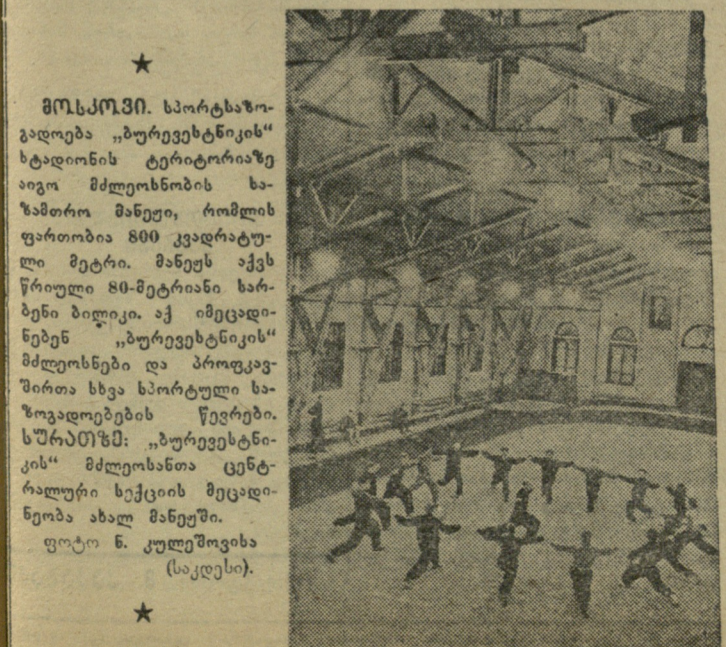 მოსკოვი. სპორტსაზო-
გადოება „ბურევესტნიკის“
სტადიონის ტერიტორიაზე
აიგო მძლეოსნობის სა-
ზამთრო მანეჟი, რომლის
ფართობია 800 კვადრატუ-
ლი მეტრი. მანეჟს აქვს
წრიული 80-მეტრიანი სარ-
ბენი ბილიკი. აქ იმეცადი-
ნებენ „ბურევესტნიკის“
მძლეოსნები და პროფკავ-
შირთა სხვა სპორტული სა-
ზოგადოებების წევრები.
სურათზე: „ბურევესტნი-
კის“ მძლეოსანთა ცენტ-
რალური სექციის მეცადი-
ნეობა ახალ მანეჟში.
ფოტო ნ. კულეშოვისა
(საკდესი).